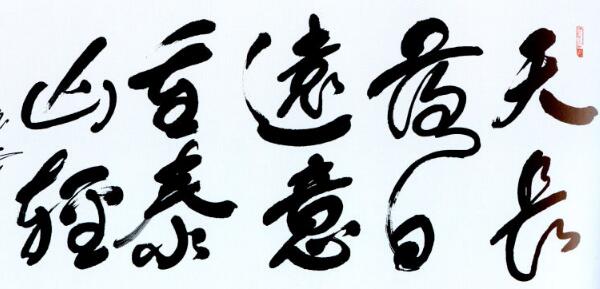 天長
落日
遠意
重泰
山輕